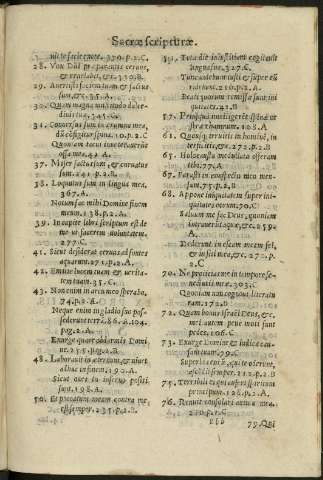 Sacræ scripturæ.
uit te facie note. 370.p.2.C.
28. Vox Dñi præparantis ceruos,
& reuelabit, &c. 350.B
29. Auertisti faciem tuam et factus
sum, &c. 351.A
30. Quàm magna multitudo dulce-
dinis tuæ, 345.C.
31. Conuersus sum in ærumna mea
dũ configitur spina. 10.p.2.C
Quoniam tacui inueterauerũt
ossa mea. 42.A
37. Miser factus sum, & curuatus
sum. 241.p.2.B.
38. Loquutus sum in lingua mea,
367.A.
Notum fac mihi Domine finem
meum. 138.p.2.A.
39. In capite libri scriptum est de
me ut facerem voluntatem.
277.C.
41. Sicut desiderat ceruus ad fontes
aquarum. 271.p.2.A.
42. Emitte lucem tuam & verita-
tem tuam. 35.C.
43. Non enim in arcu meo sperabo,
74.p.2.A.
Neque enim in gladio suo pos-
sederunt terrã. 86.A.104.
pag.2.A.
Exurge quare obdormis Domi-
ne. 255.pag.2.B
48. Laborauit in æternum, & viuet
adhuc in finem, 190.A.
Sicut oues in inferno positi
sunt, 198.A.
50. Et peccatum meum contra me
est semper. 235.p.2.B
51. Tota die iniustitiam cogitauit
lingua tua. 327.C.
Tunc videbunt iusti & super eũ
ridebunt. 210.p.2.A.
Beati quorum remissæ sunt ini-
quitates. 41.B
57. Priusquam intelligerẽt spinæ ve-
stræ rhamnum. 105.A
61. Quousque irruitis in hominẽ, in-
terficitis, &c. 272.p.2.B
65. Holocausta medullata offeram
tibi. 77.A
67. Pax est in conspectu meo
75.p.2.B
68. Appone iniquitatem super ini-
quitates eorum. 70.C
Saluum me fac Deus, quoniam
intrauerunt aquæ, &c. 252.
A
Dederunt in escam meam fel,
& in siti mea, &c. 270.p.2.C
70. Ne proijcias me in tempore se-
nectutis meæ. 303.C
Quoniam non cognoui litera-
turam. 172.B
72. Quàm bonus Israël Deus, &c.
mei autem pene moti sunt
pedes. 106.C
73. Exurge Domine & iudica cau-
sam tuam. 79.C
Superbia eorũ, qui te oderunt,
ascendit semper. 112.p.2.B
75. Terribili & ei qui aufert spiritum
principum. 119.C
76. Renuit consolari anima mea.
210.p.2.C
bbb
79. Qui